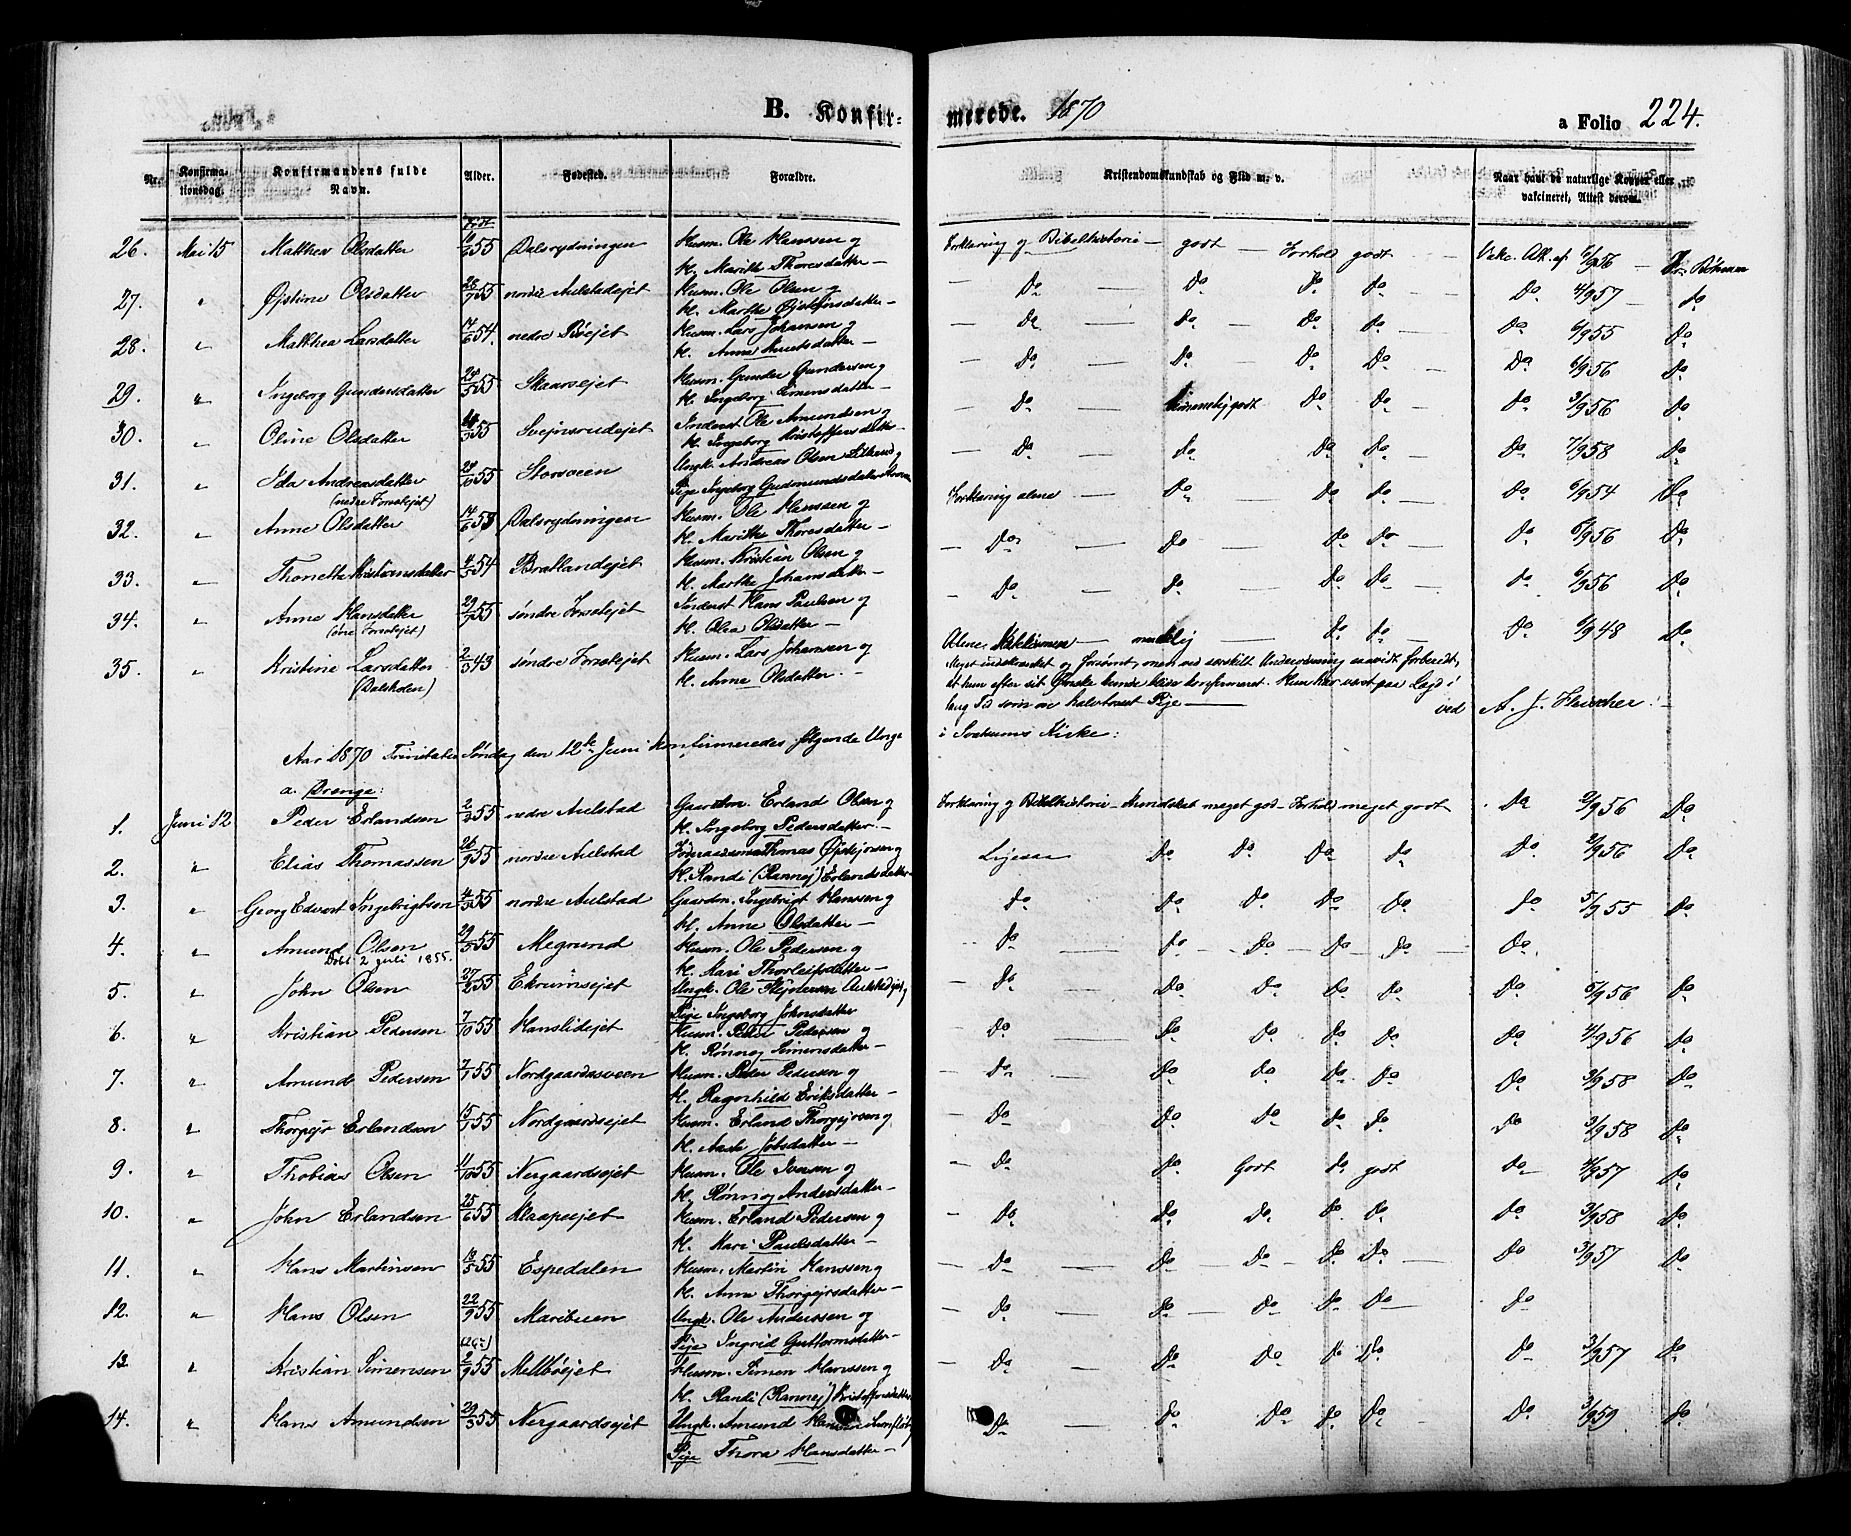 B. Konfir-
merede. 1870
a Folio 224.
Nr. Konfirma- tionsdag. Konfirmandens fulde Navn. Alder. Fødested. Forældre.
Kristendomskundskab og Flid m. v. Naar havt de naturlige Kopper eller vakcineret, Attest derom.
Født
26. Mai 15 Matthea Olsdatter 55 Dalsrydningen Husm. Ole Hanssen og
K. Marith Thoresdatter –
Forklaring og Bibelhistorie – godt – Forhold godt – Vakc. Att. af 6/9 56
27. " Øistine Olsdatter 28/7 55 nordre Aulstadejet Husm. Ole Olsen og
K. Marthe Øisteinsdatter –
– Do – Do Do Do – Do 4/9 57 – do
28. " Matthea Larsdatter 14/6 54. nedre Bøejet Husm. Lars Johansen og
K. Anne Knutsdatter –
– Do – Do – Do Do – Do 6/9 55 Do
29. " Ingeborg Gundersdatter 24/5 55 Skaarsejet Husm. Gunder Gundersen og
K. Ingeborg Simensdatter –
– Do – Do – Do Do – Do 6/9 56 Do
30. " Oline Olsdatter 55 Svejnsrudejet Inderst Ole Amundsen og
K. Ingeborg Kristoffersdatter –
– Do – temmelig godt Do Do – Do 3/9 56 Do
31. " Ida Andreasdatter 24/10 55 Storsveen Ungk. Andreas Olsen
(nedre Forsetejet) Pige Ingeborg Gudmundsdatter
– Do – do – Do Do – Do 7/9 58 Do
32. " Anne Olsdatter 14/6 53 Dalsrydningen Husm. Ole Hanssen og
K. Marithe Thoresdatter –
Forklaring alene – Do – Do Do – Do 6/9 54 Do
33. " Thonette Kristiansdatter 54 Bratlandejet Husm. Kristian Olsen og
K. Marthe Johansdatter –
– Do – Do – Do Do – Do 6/9 56 Do
34. " Anne Hansdatter 29/7 55 søndre Forsetejet Inderst Hans Paulsen og
(øvre Forsetejet) K. Olea Olsdatter –
– Do – do – Do Do – do 6/9 56 Do
35. " Kristine Larsdatter 2/3 43 søndre Forsetejet Husm. Lars Johansen og
(Dalsholen) K. Anne Olsdatter. –
Alene – maadelig – do Do – Do 6/9 48 Do
Meget indskrænket og forsømt, men ved særskilt Underviisning saavidt forberedt,
at hun efter sit Ønske kunde blive konfirmeret. Hun har været paa Lægd i
lang Tid som en halvtosset Pige – ved A. J. Fleischer:
Aar 1870 Trinitatis Søndag den 12te Juni konfirmeredes følgende Unge
i Svatsums Kirke:
a. Drenge:
1. Juni 12 Peder Erlandsen 2/3 55 nedre Aulstad Gaardm. Erland Olsen og
K. Ingeborg Pedersdatter. –
Forklaring og Bibelhistorie – Kundskab meget god – Forhold meget godt – Do 2/9 56 Do
2. " Elias Thomassen 26/9 55 nordre Aulstad Føderaadsm. Thomas og
K. Randi (Rannej) Erlandsdatter
Ligesaa Do Do Do do – Do. 2/9 56 Do
3. " Georg Edvart Ingebrigtsen 4/3 55 nordre Aulstad Gaardm. Ingebrigt Hanssen og
K. Anne Olsdatter –
Do Do Do Do Do – do 5/9 55 Do
4. " Amund Olsen 29/5 55 Megrund Husm. Ole Pedersen og
Døbt 2 juli 1855. K. Mari Thorleifsdatter –
do – do – Do – Do – do – Do
5. " John Olsen 27/2 55 Ekrumsejet Ungk. Ole Aulstadejet,
Pige Ingeborg Johnsdatter
– Do – Do Do Do Do Do 6/9 56 Do
6. " Kristian Pedersen 7/10 55 Hanslidejet Husm. Peder Pedersen og
K. Rønnoj Simensdatter –
Do – Do Do Do Do Do 4/9 56 do
7. " Amund Pedersen 2/7 55 Nordgaardsveen Husm. Peder Pedersen og
K. Ragnhild Eriksdatter –
– Do – Do Do Do Do Do 3/9 58 Do
8. " Erlandsen 15/7 55 Nordgaardsejet Husm. Erland og
K. Jobsdatter –
Do – Do do do do Do 3/9 58 Do
9. " Thobias Olsen 4/10 55 Nergaardsejet Husm. Ole Iversen og
K. Rønnoj Andersdatter –
– Do – Do Godt do godt Do – 4/9 57 Do
10. " John Erlandsen 25/6 55 Klaapeejet Husm. Erland Pedersen og
K. Mari Paulsdatter –
– Do – Do do do. Do Do 3/9 58 Do
11. " Hans Martinsen 13/5 55 Espedalen Husm. Martin Hanssen og
K. Anne Thorgejrsdatter –
– Do – Do – Do – Do Do – Do 3/9 57 Do
12. " Hans Olsen 22/9 55 Maribuen Ungk. Ole Anderssen og
Pige Ingrid Guttormsdatter –
– Do – Do – Do – Do Do – Do
13. " Kristian Simensen 2/9 55 Mellbøejet Husm. Simen Hanssen og
K. Randi (Rannej) Kristoffersdatter
– Do – Do Do Do Do Do 3/9 57 do
14. " Hans Amundsen 29/3 55 Nergaardsejet Ungk. Amund Hansen
Pige Thora Hansdatter –
– Do – Do Do Do Do – Do 3/9 59 do